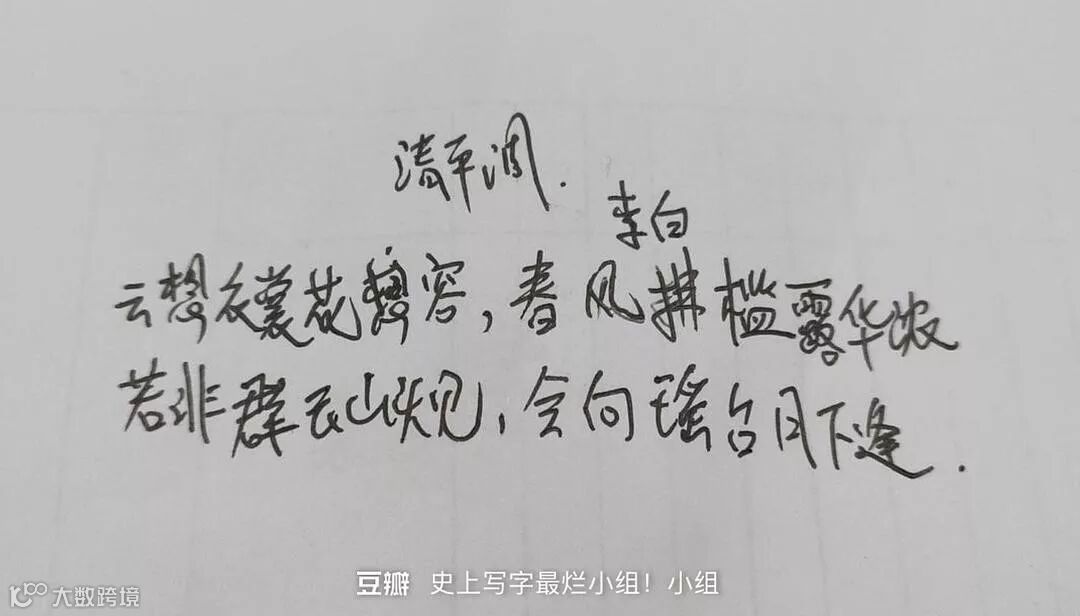 清平调.
李白
云想衣裳花想容,春风拂槛露华浓
若非群玉山头见,会向瑶台月下逢.
豆瓣 史上写字最烂小组!小组
大数跨境